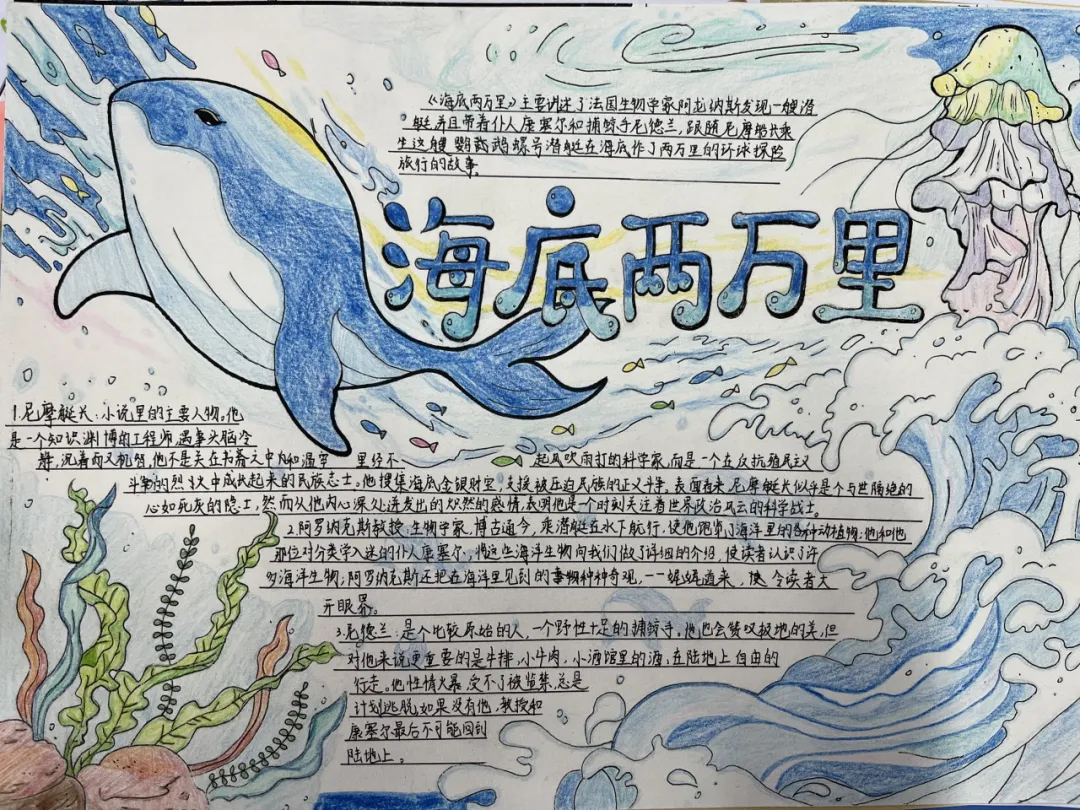 《海底两万里》主要讲述了法国生物学家阿龙纳斯发现一艘潜
艇,并且带着仆人康塞尔和捕鲸手尼德兰,跟随尼摩船长乘
坐这艘鹦鹉螺号潜艇在海底作了两万里的环球探险
旅行的故事。
海底两万里
1.尼摩艇长:小说里的主要人物。他
是一个知识渊博的工程师,遇事头脑冷
静,沉着而又机智,他不是关在书斋之中内和温室里经不起风吹雨打的科学家,而是一个在反抗殖民主义
斗争的烈火中成长起来的民族志士。他搜集海底金银财宝,支援被压迫民族的正义斗争,表面看来,尼摩艇长似乎是个与世隔绝的
心如死灰的隐士,然而从他内心深处迸发出的炽然的感情,表明他是个时刻关注着世界政治风云的科学战士。
2.阿罗纳克斯教授,生物学家,博古通今,乘潜艇在水下航行,使他饱览了海洋里的各种动植物;他和他
那位对分类学入迷的仆人康塞尔,将这些海洋生物向我们做了详细的介绍,使读者认识了许
多海洋生物;阿罗纳克斯还把在海洋里见到的事物种种奇观,一一娓娓道来,令读者大
开眼界。
3.尼德兰:是个比较原始的人,一个野性十足的捕鲸手。他也会赞叹极地的美,但
对他来说更重要的是牛排,小牛肉,小酒馆里的酒,在陆地上自由的
行走。他性情火暴,受不了被监禁,总是
计划逃脱,如果没有他,教授和
康塞尔最后不可能回到
陆地上。